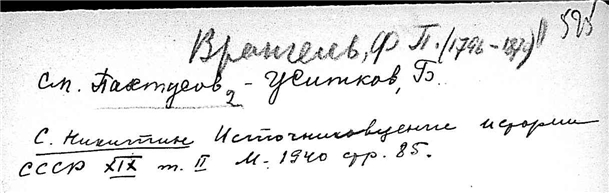 Врангель, Ф. П. (1796-1870) 595
см. Пахтусов2 - Житков, Б.
С. Никитин Источниковедение истории
СССР XIX т. II М. 1940 стр. 85.